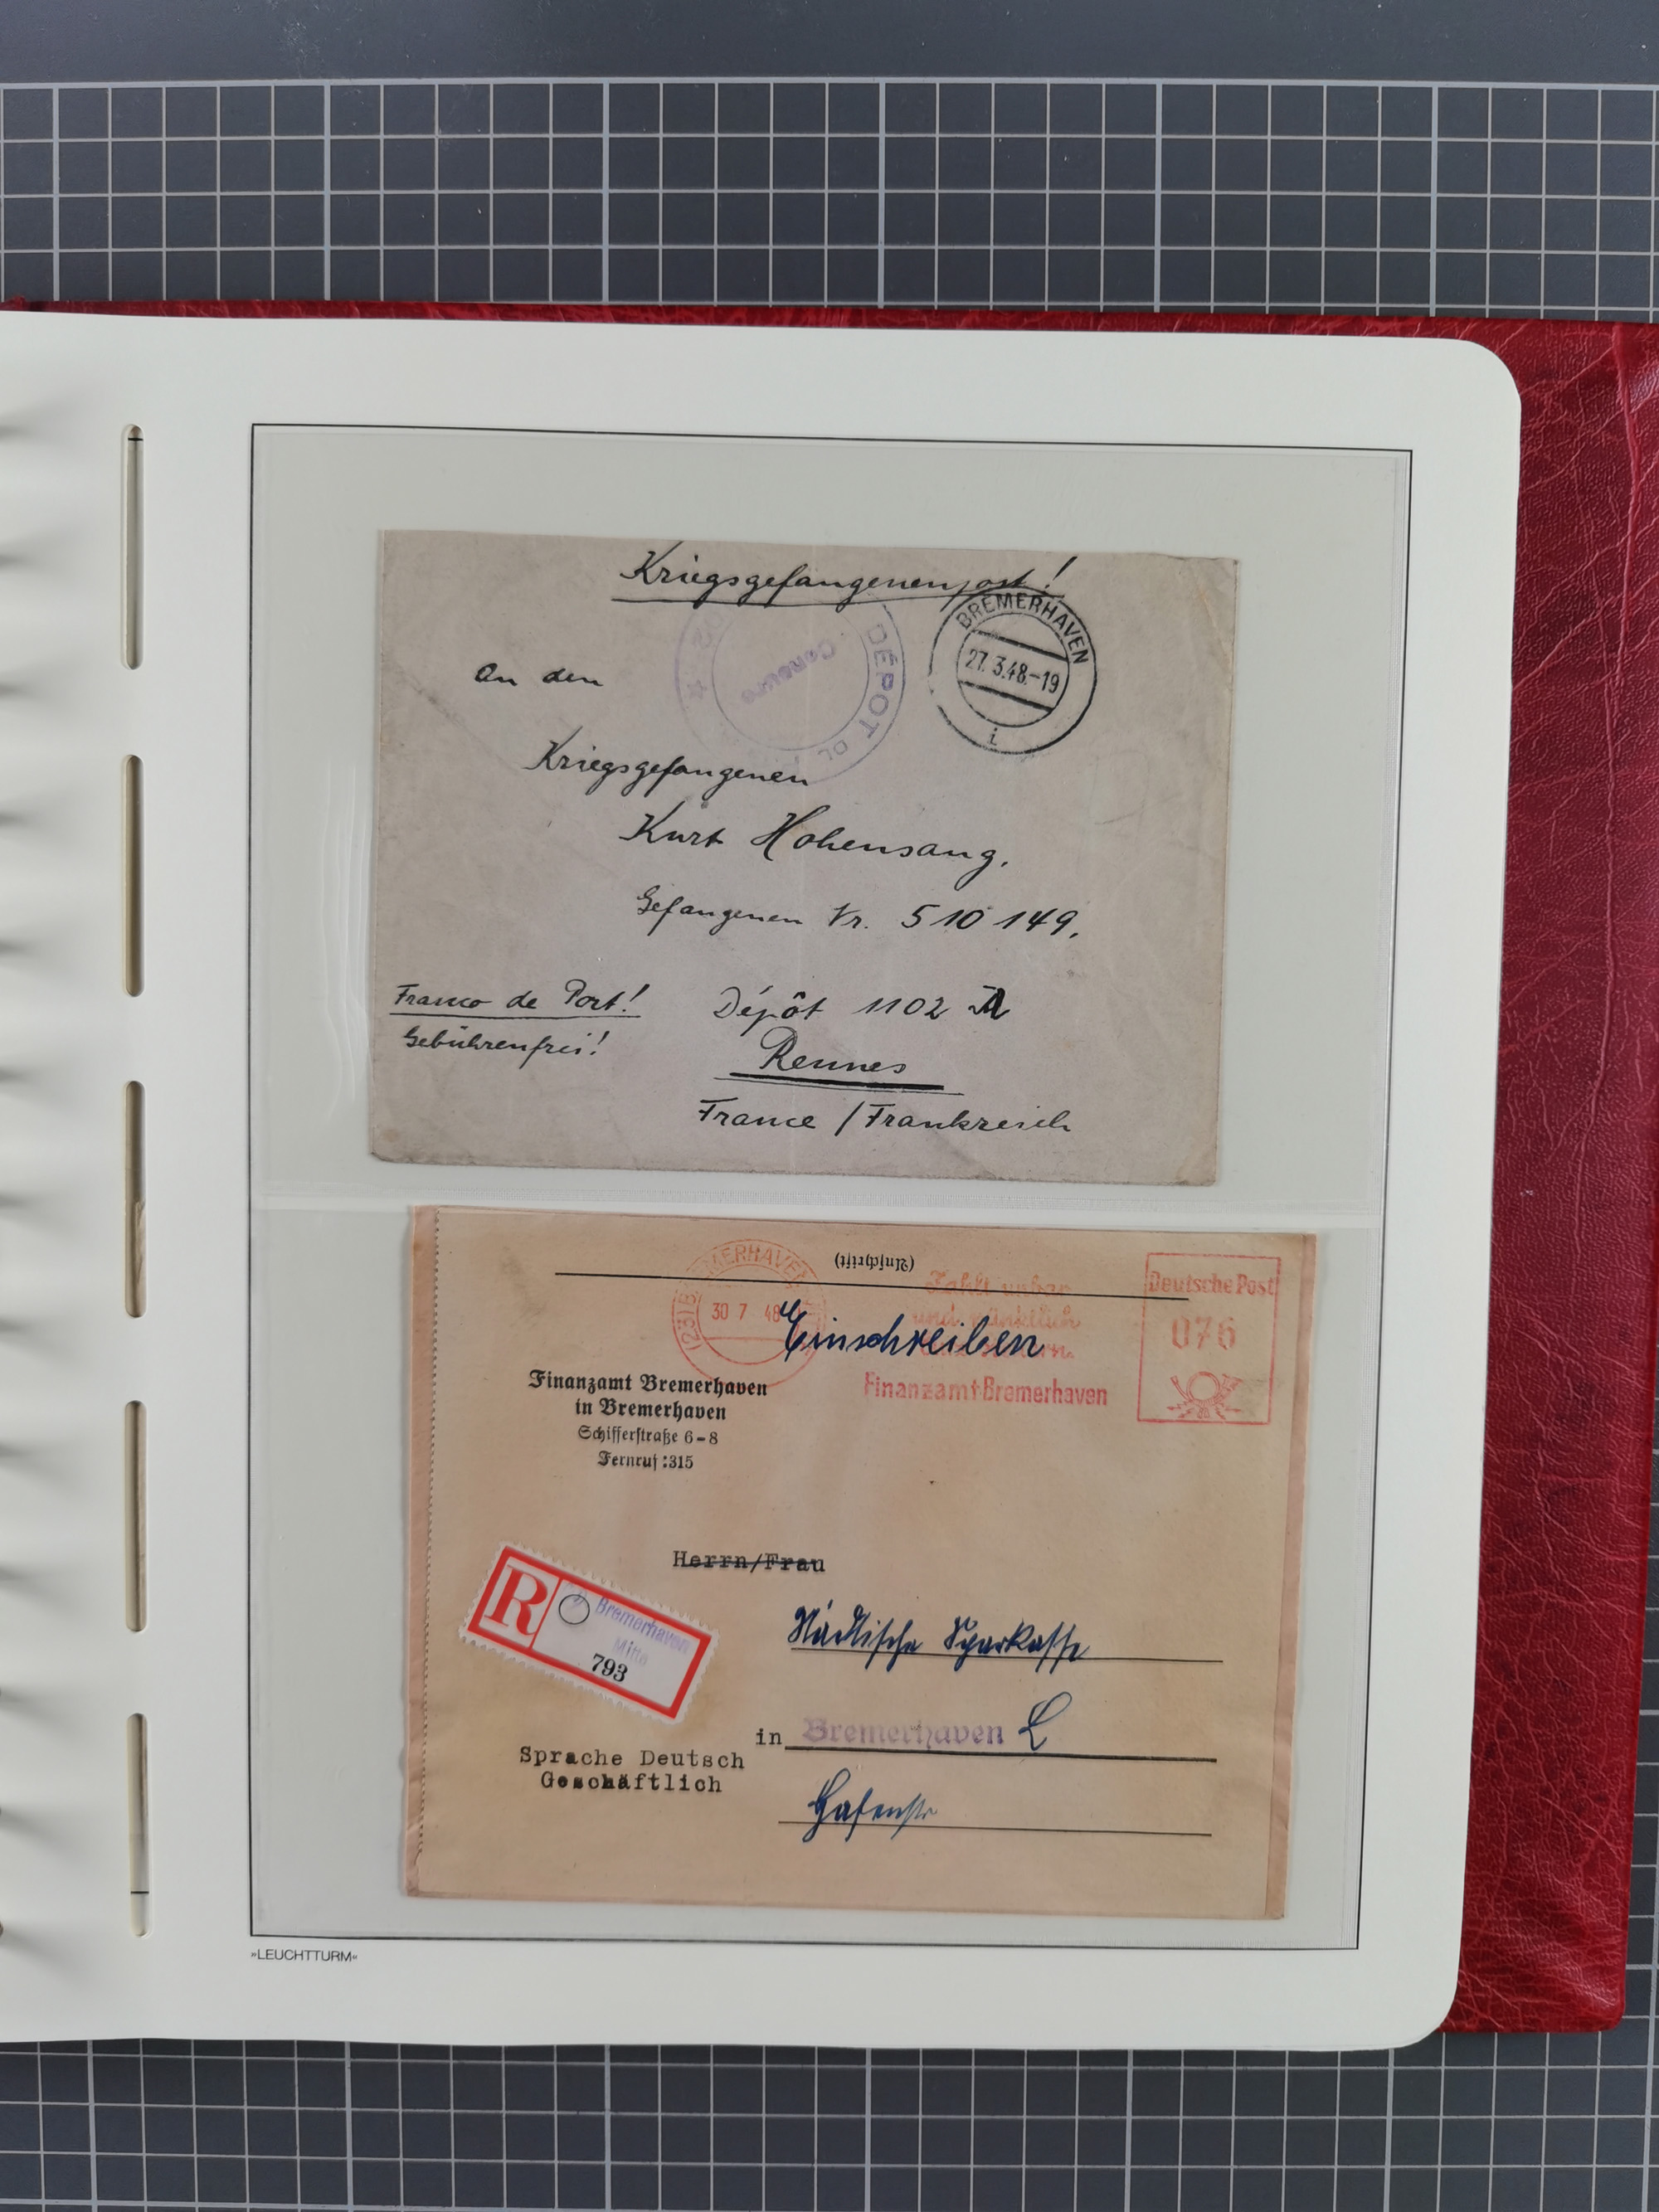 Kriegsgefangenenpost!
BREMERHAVEN
27.3.48.-19
i
DÉPÔT DE
Censure
An den
Kriegsgefangenen
Kurt Hohensang,
Gefangenen Nr. 510 149,
Franco de Port!
Gebührenfrei!
Dépôt 1102 A
Rennes
France / Frankreich
(Anschrift)
(23) BREMERHAVEN
30 7 48
Zahlt unbar
und pünktlich
Deutsche Post
076
Einschreiben
Finanzamt Bremerhaven
Finanzamt Bremerhaven
in Bremerhaven
Schifferstraße 6-8
Fernruf :315
Herrn/Frau
R
Bremerhaven
Mitte
793
Städtische Sparkasse
in Bremerhaven L
Sprache Deutsch
Geschäftlich
Hafenstr
»LEUCHTTURM«